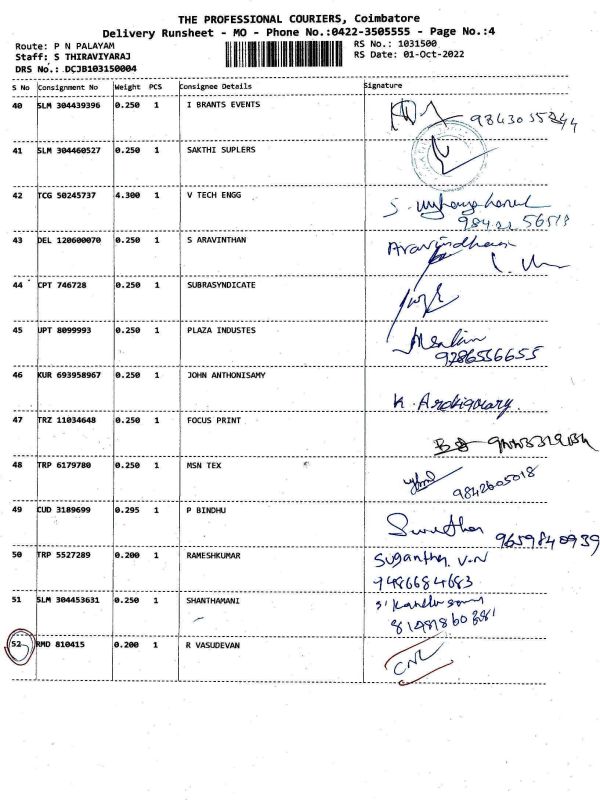 THE PROFESSIONAL COURIERS, Coimbatore
Delivery Runsheet - MO - Phone No.:0422-3505555 - Page No.:4
Route: P N PALAYAM
Staff: S THIRAVIYARAJ
DRS No.: DCJB103150004
RS No.: 1031500
RS Date: 01-Oct-2022
S No Consignment No Weight PCS Consignee Details Signature
40 SLM 304439396 0.250 1 I BRANTS EVENTS
41 SLM 304460527 0.250 1 SAKTHI SUPLERS
42 TCG 50245737 4.300 1 V TECH ENGG
43 DEL 120600070 0.250 1 S ARAVINTHAN Aravindhan
44 CPT 746728 0.250 1 SUBRASYNDICATE
45 UPT 8099993 0.250 1 PLAZA INDUSTES
9786556655
46 KUR 693958967 0.250 1 JOHN ANTHONISAMY
47 TRZ 11034648 0.250 1 FOCUS PRINT
48 TRP 6179780 0.250 1 MSN TEX
9842605018
49 CUD 3189699 0.295 1 P BINDHU
9659840939
50 TRP 5527289 0.200 1 RAMESHKUMAR Suganthy V.N
9486684683
51 SLM 304453631 0.250 1 SHANTHAMANI
52 RMD 810415 0.200 1 R VASUDEVAN CNL